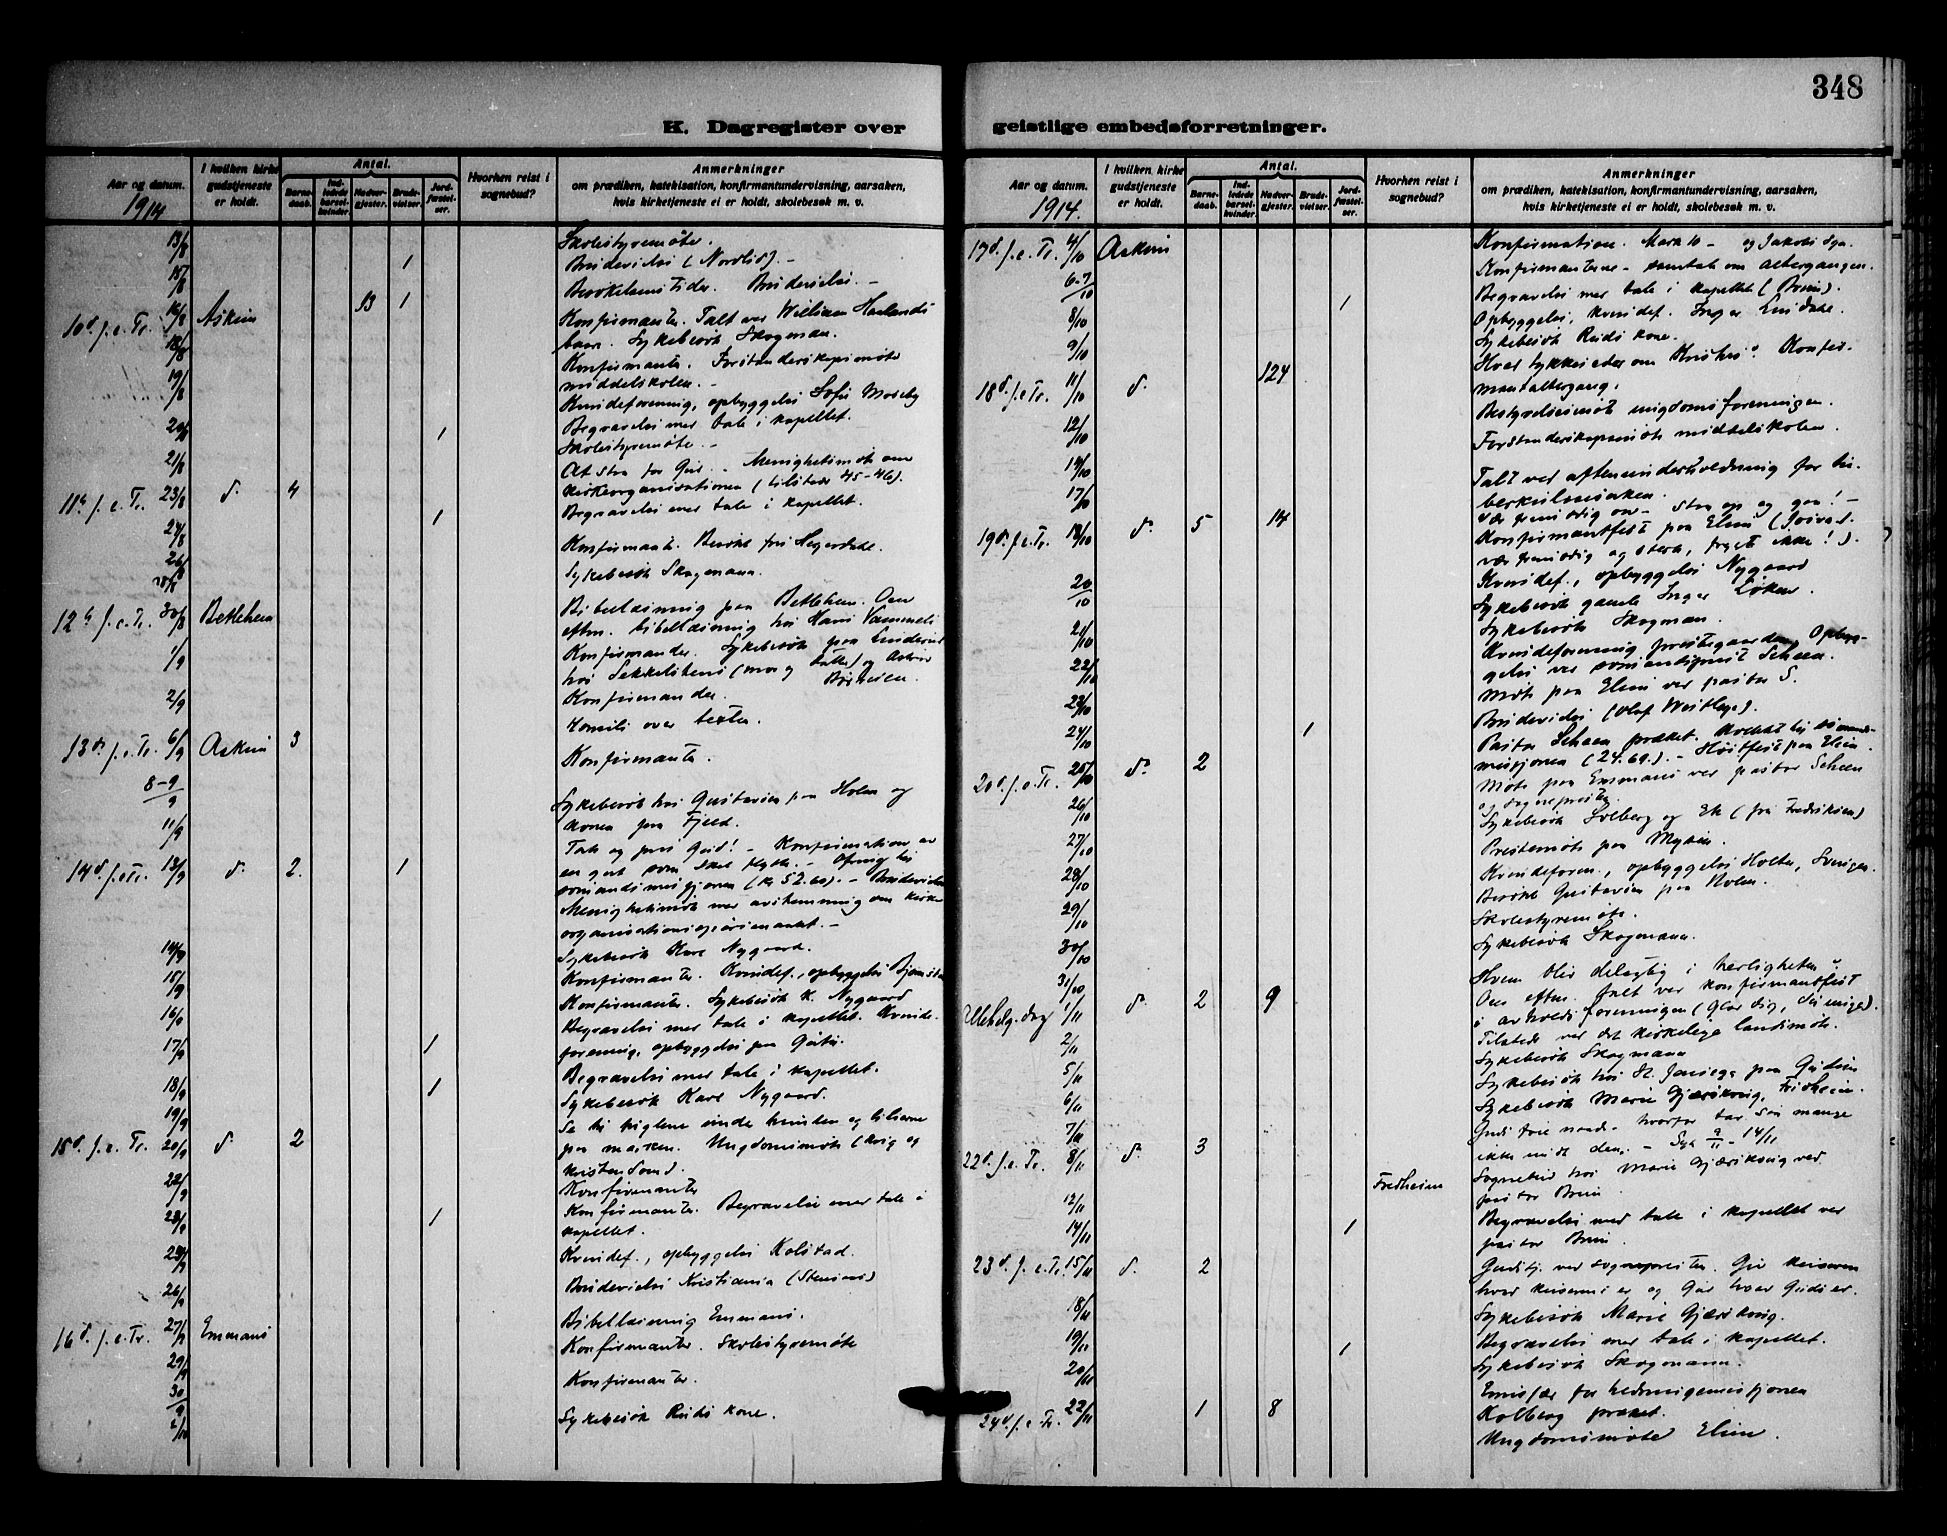 348
K. Dagregister over
geistlige embedsforretninger.
Aar og datum.
1914
I hvilken kirke gudstjeneste er holdt.
Antal.
Barnedaab.
Indledede barselkvinder.
Nadvergjester.
Brudevielser.
Jordfæstelser.
Hvorhen reist i sognebud?
Anmerkninger
om prædiken, katekisation, konfirmantundervisning, aarsaken,
hvis kirketjeneste ei er holdt, skolebesøk m. v.
13/8 Skolestyremøte.
15/8 1 Brudevielse (Nordlid). -
Brudevielse. -
10d. s. e. Tr. 16/8 Askim 13 1
Konfirmanter. Talt ved William
barn. Sykebesøk Skogman.
18/8 Konfirmanter. Forstanderskapsmøte
middelskolen. -
19/8 Kvindeforening, opbyggelse Sofie Moseby
20/8 1 Begravelse med tale i kapellet.
21/8 Skolestyremøte. -
11te s. e. Tr. 23/8 d. 4 At staa for Gud. - Menighetsmøte om
kirkeorganisationen (tilstede 45-46).
24/8 1 Begravelse med tale i kapellet.
26/8 Konfirmanter. Besøkt
Sykebesøk Skogmann.
12te s. e. Tr. 30/8 Betlehem Bibellæsning paa Betlehem. Om
eftm. bibellæsning hos Hans Vammeli
1/9 Konfirmander. Sykebesøk paa
hos
2/9 Konfirmander.
13de s. e. Tr. 6/9 Askim 3 Homili over texten.
8-9/9 Konfirmanter.
11/9 Sykebesøk hos Gustavsen paa Holen og
konen paa Fjeld.
14d. s. e. Tr. 13/9 d. 2. 1 Tak og pris Gud! - Konfirmation av
en gut som skal flytte. - Ofring til
sømandsmisjonen (kr 52.60). - Brudevielse
Menighetsmøte med avstemning om kirke
organisationsspørsmaalet. -
14/9 Sykebesøk Kare Nygaard.
15/9 Konfirmanter. Kvindef., opbyggelse
16/9 Konfirmanter. Sykebesøk K. Nygaard
17/9 1 Begravelse med tale i kapellet. Kvinde-
forening, opbyggelse paa
18/9 1 Begravelse med tale i kapellet.
19/9 Sykebesøk Kare Nygaard.
15d. s. e. Tr. 20/9 d. 2 Se til fuglene under himlen og liliene
paa marken. Ungdomsmøte (krig og
kristendom).
22/9 Konfirmanter
23/9 1 Konfirmanter. Begravelse med tale i
kapellet.
24/9 Kvindef., opbyggelse Kolstad.
26/9 Brudevielse Kristiania
16d. s. e. Tr. 27/9 Emmaus Bibellæsning Emmaus.
29/9 Konfirmanter. Skolestyremøte
30/9 Konfirmanter.
2/10 Sykebesøk Ruds kone.
Aar og datum.
1914.
I hvilken kirke gudstjeneste er holdt.
Antal.
Barnedaab.
Indledede barselkvinder.
Nadvergjester.
Brudevielser.
Jordfæstelser.
Hvorhen reist i sognebud?
Anmerkninger
om prædiken, katekisation, konfirmantundervisning, aarsaken,
hvis kirketjeneste ei er holdt, skolebesøk m. v.
17d. s. e. Tr. 4/10 Askim Konfirmation. Mark 10 - og Jakobs
6-7/10 Konfirmanterne - samtale om altergangen.
8/10 1 Begravelse med tale i kapellet (Bruu).
Opbyggelse, kvindef. Inger
9/10 Sykebesøk Ruds kone.
18d. s. e. Tr. 11/10 d. 124 Hvad tykkes eder om Kristus? Konfir-
mantaltergang.
12/10 Bestyrelsesmøte ungdomsforeningen.
14/10 Forstanderskapsmøte middelskolen.
17/10 Talt ved aftenunderholdning for tu-
berkulosesaken.
19d. s. e. Tr. 18/10 d. 5 14 Vær frimodig - staa op og gaa! -
Konfirmantfest paa Elim
vær frimodig og sterk, frygt ikke!).
20/10 Kvindef., opbyggelse Nygaard
Sykebesøk gamle Inger Løken.
21/10 Sykebesøk Skogman.
22/10 Kvindeforening prestegaarden. Opbyg-
gelse ved sømandsprest Scheen.
23/10 Møte paa Elim ved pastor S.
24/10 1 Brudevielse (Olaf Westbye).
20d. s. e. Tr. 25/10 d. 2 Pastor Scheen præket. Kollekt til sømands-
misjonen (24.69). - Høstfest paa Elim.
26/10 Møte paa Emmaus ved pastor Scheen
og sognepresten.
27/10 Sykebesøk Solberg og Ek (fra Fredriksten)
Prestemøte paa Mysen.
28/10 Kvindeforen., opbyggelse Holter,
29/10 Besøkt Gustavsen paa Holen.
30/10 Skolestyremøte.
31/10 Sykebesøk Skogmann.
Allehelg. dag 1/11 d. 2 9 Hvem blir delagtig i herligheten?
Om eftm. talt ved konfirmantfest
i avholdsforeningen (Glæd dig, du unge).
2/11 Tilstede ved det kirkelige landsmøte.
5/11 Sykebesøk Skogmann
6/11 Sykebesøk hos St. paa
7/11 Sykebesøk Marie Gjærskrig, Fredheim.
22d. s. e. Tr. 8/11 d. 3 Guds frie naade - hvorfor tar saa mange
ikke imot den. - Syk 9/11 - 14/11
12/11 Fredheim Sognebud hos Marie Gjærskrig ved
pastor Bruu.
14/11 1 Begravelse med tale i kapellet ved
pastor Bruu.
23d. s. e. Tr. 15/11 d. 2 Gudstj. ved sognepresten. Giv keiseren
hvad keiserens er og Gud hvad Guds er.
18/11 Sykebesøk Marie Gjærskrig.
19/11 1 Begravelse med tale i kapellet.
20/11 Sykebesøk Skogmann.
24d. s. e. Tr. 22/11 1 8 Emissær for hedningemisjonen
Kolberg præket.
Ungdomsmøte Elim.